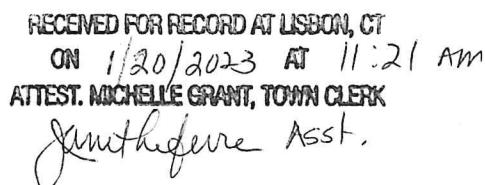 RECEIVED FOR RECORD AT LISBON, CT
ON 1/20/2023 AT 11:21 AM
ATTEST. MICHELLE GRANT, TOWN CLERK
Asst.